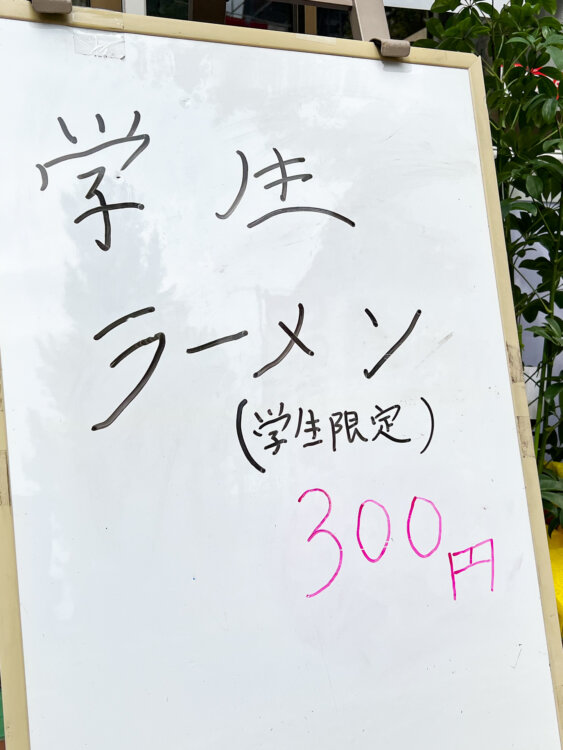 学生
ラーメン
(学生限定)
300円